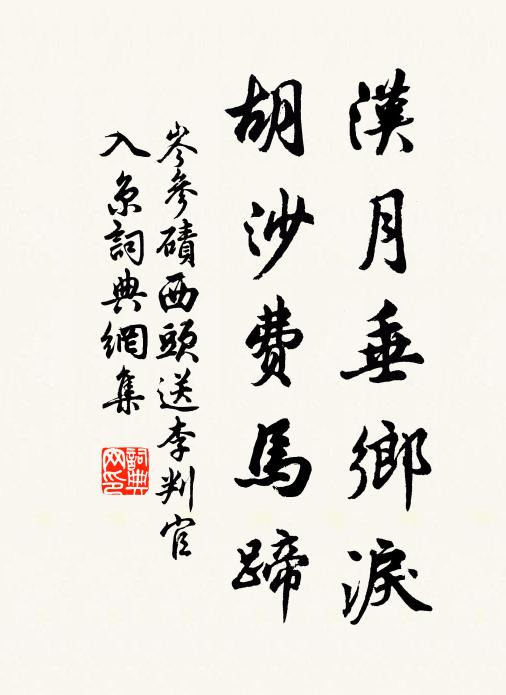 漢月垂鄉淚
胡沙費馬蹄
岑參磧西頭送李判官
入京詞典網集
詞典
网印